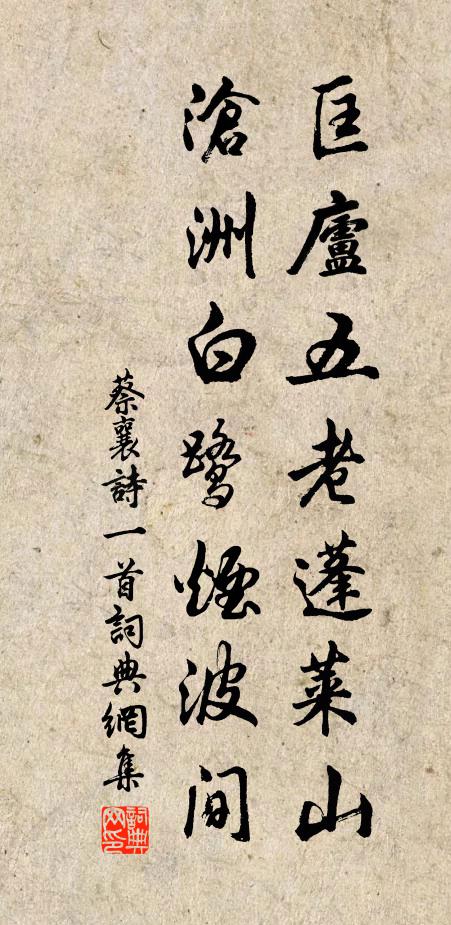 匡廬五老蓬萊山
滄洲白鷺煙波間
蔡襄詩一首詞典網集
詞典網印